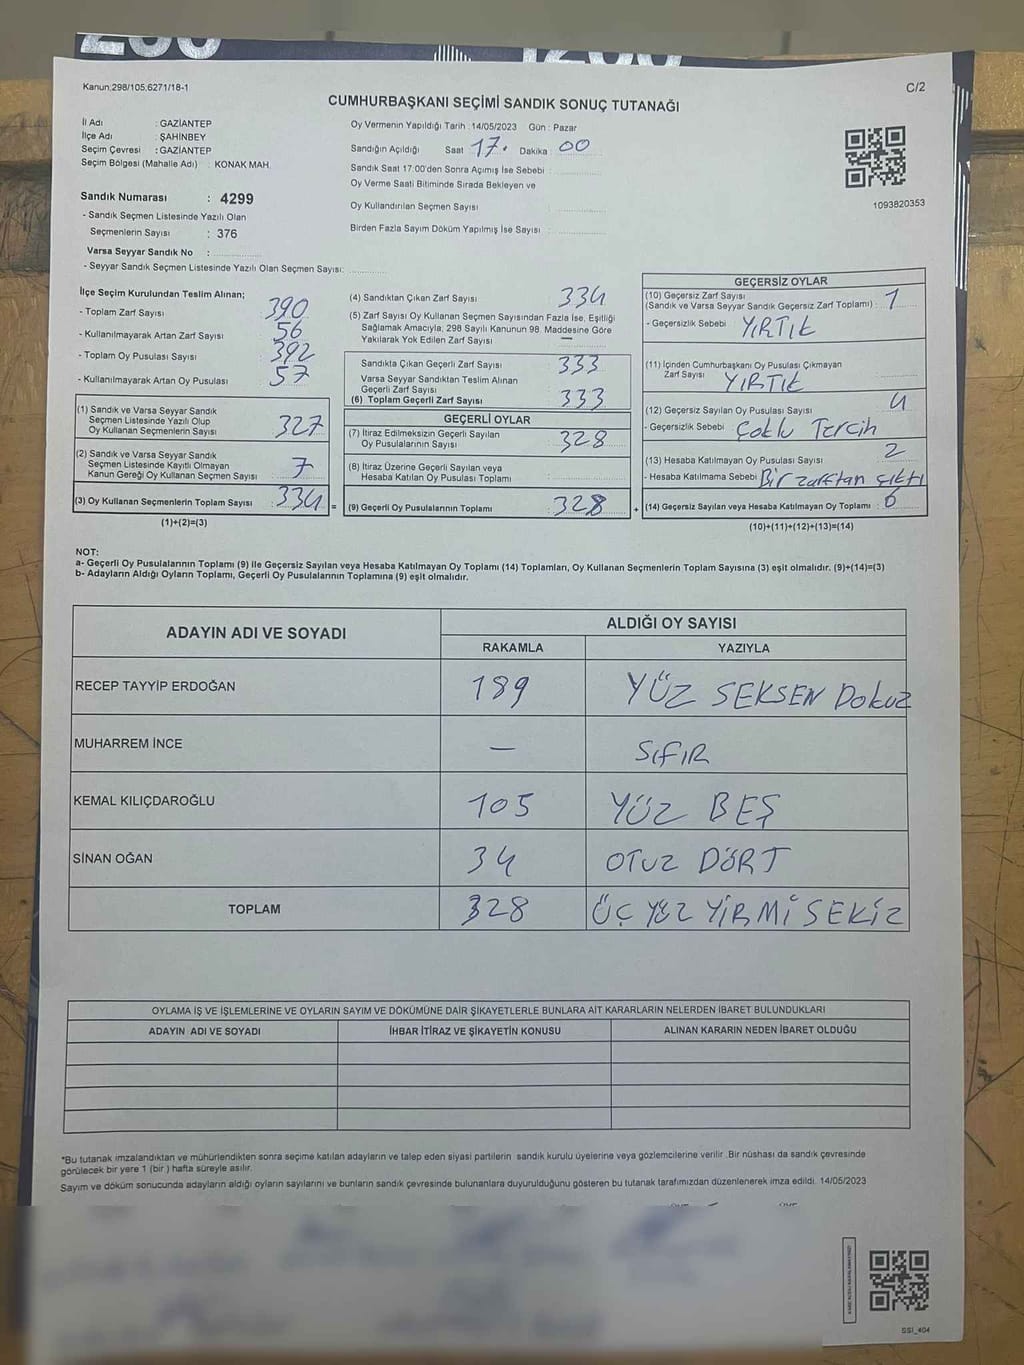 Kanun:298/105;6271/18-1
C/2
CUMHURBAŞKANI SEÇİMİ SANDIK SONUÇ TUTANAĞI
İl Adı : GAZİANTEP
İlçe Adı : ŞAHİNBEY
Seçim Çevresi : GAZİANTEP
Seçim Bölgesi (Mahalle Adı) : KONAK MAH.
Sandık Numarası : 4299
- Sandık Seçmen Listesinde Yazılı Olan
Seçmenlerin Sayısı : 376
Varsa Seyyar Sandık No :
- Seyyar Sandık Seçmen Listesinde Yazılı Olan Seçmen Sayısı:
Oy Vermenin Yapıldığı Tarih : 14/05/2023 Gün : Pazar
Sandığın Açıldığı Saat 17. Dakika 00
Sandık Saat 17:00'den Sonra Açımış İse Sebebi :
Oy Verme Saati Bitiminde Sırada Bekleyen ve
Oy Kullandırılan Seçmen Sayısı :
Birden Fazla Sayım Döküm Yapılmış İse Sayısı :
1093820353
İlçe Seçim Kurulundan Teslim Alınan;
- Toplam Zarf Sayısı : 390
- Kullanılmayarak Artan Zarf Sayısı : 56
- Toplam Oy Pusulası Sayısı : 392
- Kullanılmayarak Artan Oy Pusulası : 57
(1) Sandık ve Varsa Seyyar Sandık
Seçmen Listesinde Yazılı Olup
Oy Kullanan Seçmenlerin Sayısı : 327
(2) Sandık ve Varsa Seyyar Sandık
Seçmen Listesinde Kayıtlı Olmayan
Kanun Gereği Oy Kullanan Seçmen Sayısı : 7
(3) Oy Kullanan Seçmenlerin Toplam Sayısı : 334
(1)+(2)=(3)
(4) Sandıktan Çıkan Zarf Sayısı : 334
(5) Zarf Sayısı Oy Kullanan Seçmen Sayısından Fazla İse, Eşitliği
Sağlamak Amacıyla; 298 Sayılı Kanunun 98. Maddesine Göre
Yakılarak Yok Edilen Zarf Sayısı : —
Sandıkta Çıkan Geçerli Zarf Sayısı : 333
Varsa Seyyar Sandıktan Teslim Alınan
Geçerli Zarf Sayısı :
(6) Toplam Geçerli Zarf Sayısı : 333
GEÇERLİ OYLAR
(7) İtiraz Edilmeksizin Geçerli Sayılan
Oy Pusulalarının Sayısı : 328
(8) İtiraz Üzerine Geçerli Sayılan veya
Hesaba Katılan Oy Pusulası Toplamı :
= (9) Geçerli Oy Pusulalarının Toplamı : 328
GEÇERSİZ OYLAR
(10) Geçersiz Zarf Sayısı
(Sandık ve Varsa Seyyar Sandık Geçersiz Zarf Toplamı) : 1
- Geçersizlik Sebebi : YIRTIK
(11) İçinden Cumhurbaşkanı Oy Pusulası Çıkmayan
Zarf Sayısı : YIRTIK
(12) Geçersiz Sayılan Oy Pusulası Sayısı : 4
- Geçersizlik Sebebi : Çoklu Tercih
(13) Hesaba Katılmayan Oy Pusulası Sayısı : 2
- Hesaba Katılmama Sebebi : Bir zarftan çıktı
+ (14) Geçersiz Sayılan veya Hesaba Katılmayan Oy Toplamı : 6
(10)+(11)+(12)+(13)=(14)
NOT:
a- Geçerli Oy Pusulalarının Toplamı (9) ile Geçersiz Sayılan veya Hesaba Katılmayan Oy Toplamı (14) Toplamları, Oy Kullanan Seçmenlerin Toplam Sayısına (3) eşit olmalıdır. (9)+(14)=(3)
b- Adayların Aldığı Oyların Toplamı, Geçerli Oy Pusulalarının Toplamına (9) eşit olmalıdır.
ADAYIN ADI VE SOYADI
ALDIĞI OY SAYISI
RAKAMLA YAZIYLA
RECEP TAYYİP ERDOĞAN 189 YÜZ SEKSEN Dokuz
MUHARREM İNCE — SIFIR
KEMAL KILIÇDAROĞLU 105 YÜZ BEŞ
SİNAN OĞAN 34 OTUZ DÖRT
TOPLAM 328 ÜÇ YÜZ YİRMİ SEKİZ
OYLAMA İŞ VE İŞLEMLERİNE VE OYLARIN SAYIM VE DÖKÜMÜNE DAİR ŞİKAYETLERLE BUNLARA AİT KARARLARIN NELERDEN İBARET BULUNDUKLARI
ADAYIN ADI VE SOYADI İHBAR İTİRAZ VE ŞİKAYETİN KONUSU ALINAN KARARIN NEDEN İBARET OLDUĞU
*Bu tutanak imzalandıktan ve mühürlendikten sonra seçime katılan adayların ve talep eden siyasi partilerin sandık kurulu üyelerine veya gözlemcilerine verilir .Bir nüshası da sandık çevresinde
görülecek bir yere 1 (bir ) hafta süreyle asılır.
Sayım ve döküm sonucunda adayların aldığı oyların sayılarını ve bunların sandık çevresinde bulunanlara duyurulduğunu gösteren bu tutanak tarafımızdan düzenlenerek imza edildi. 14/05/2023
SSI_404